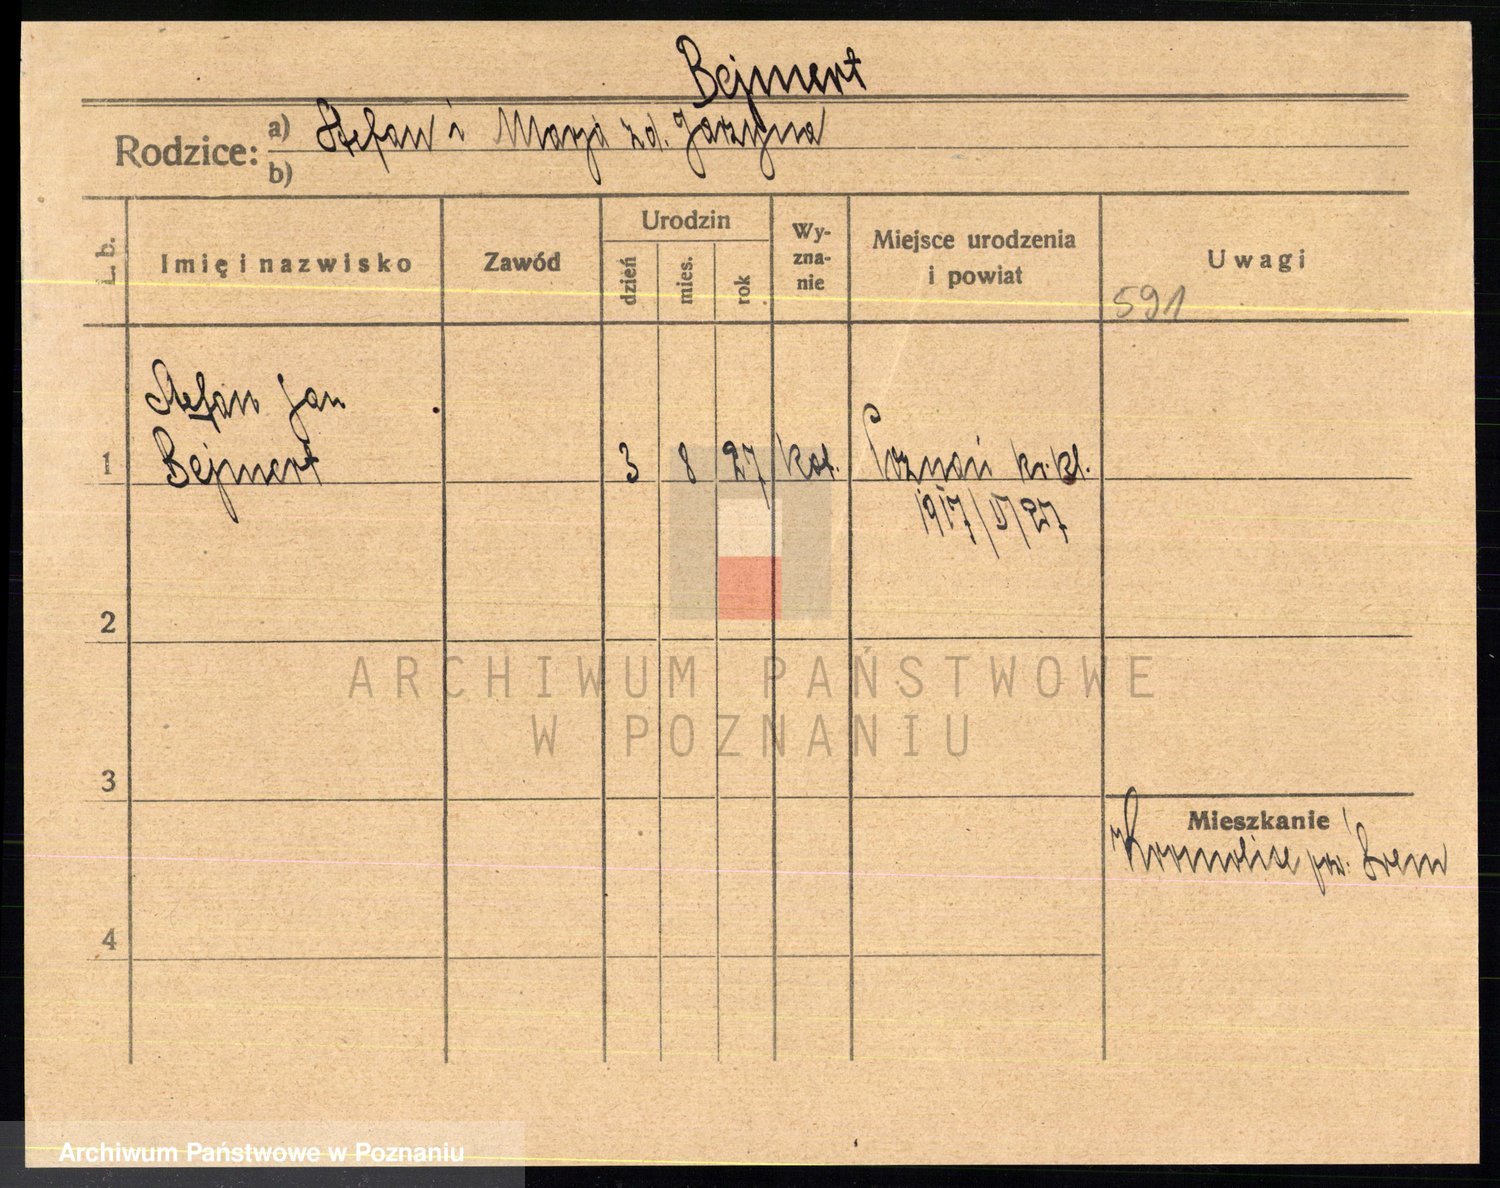 Bejmert
Rodzice: a) Stefan i Marja zd. Jarzyna
b)
L. b.
Imię i nazwisko
Zawód
Urodzin
dzień
mies.
rok
Wy-
zna-
nie
Miejsce urodzenia
i powiat
Uwagi
591
Stefan Jan
1 Bejmert 3 8 27 kat. Poznań kr. kl.
1917/V/27
2
ARCHIWUM PAŃSTWOWE
W POZNANIU
3
Mieszkanie
Kromolice pow. Śrem
4
Archiwum Państwowe w Poznaniu